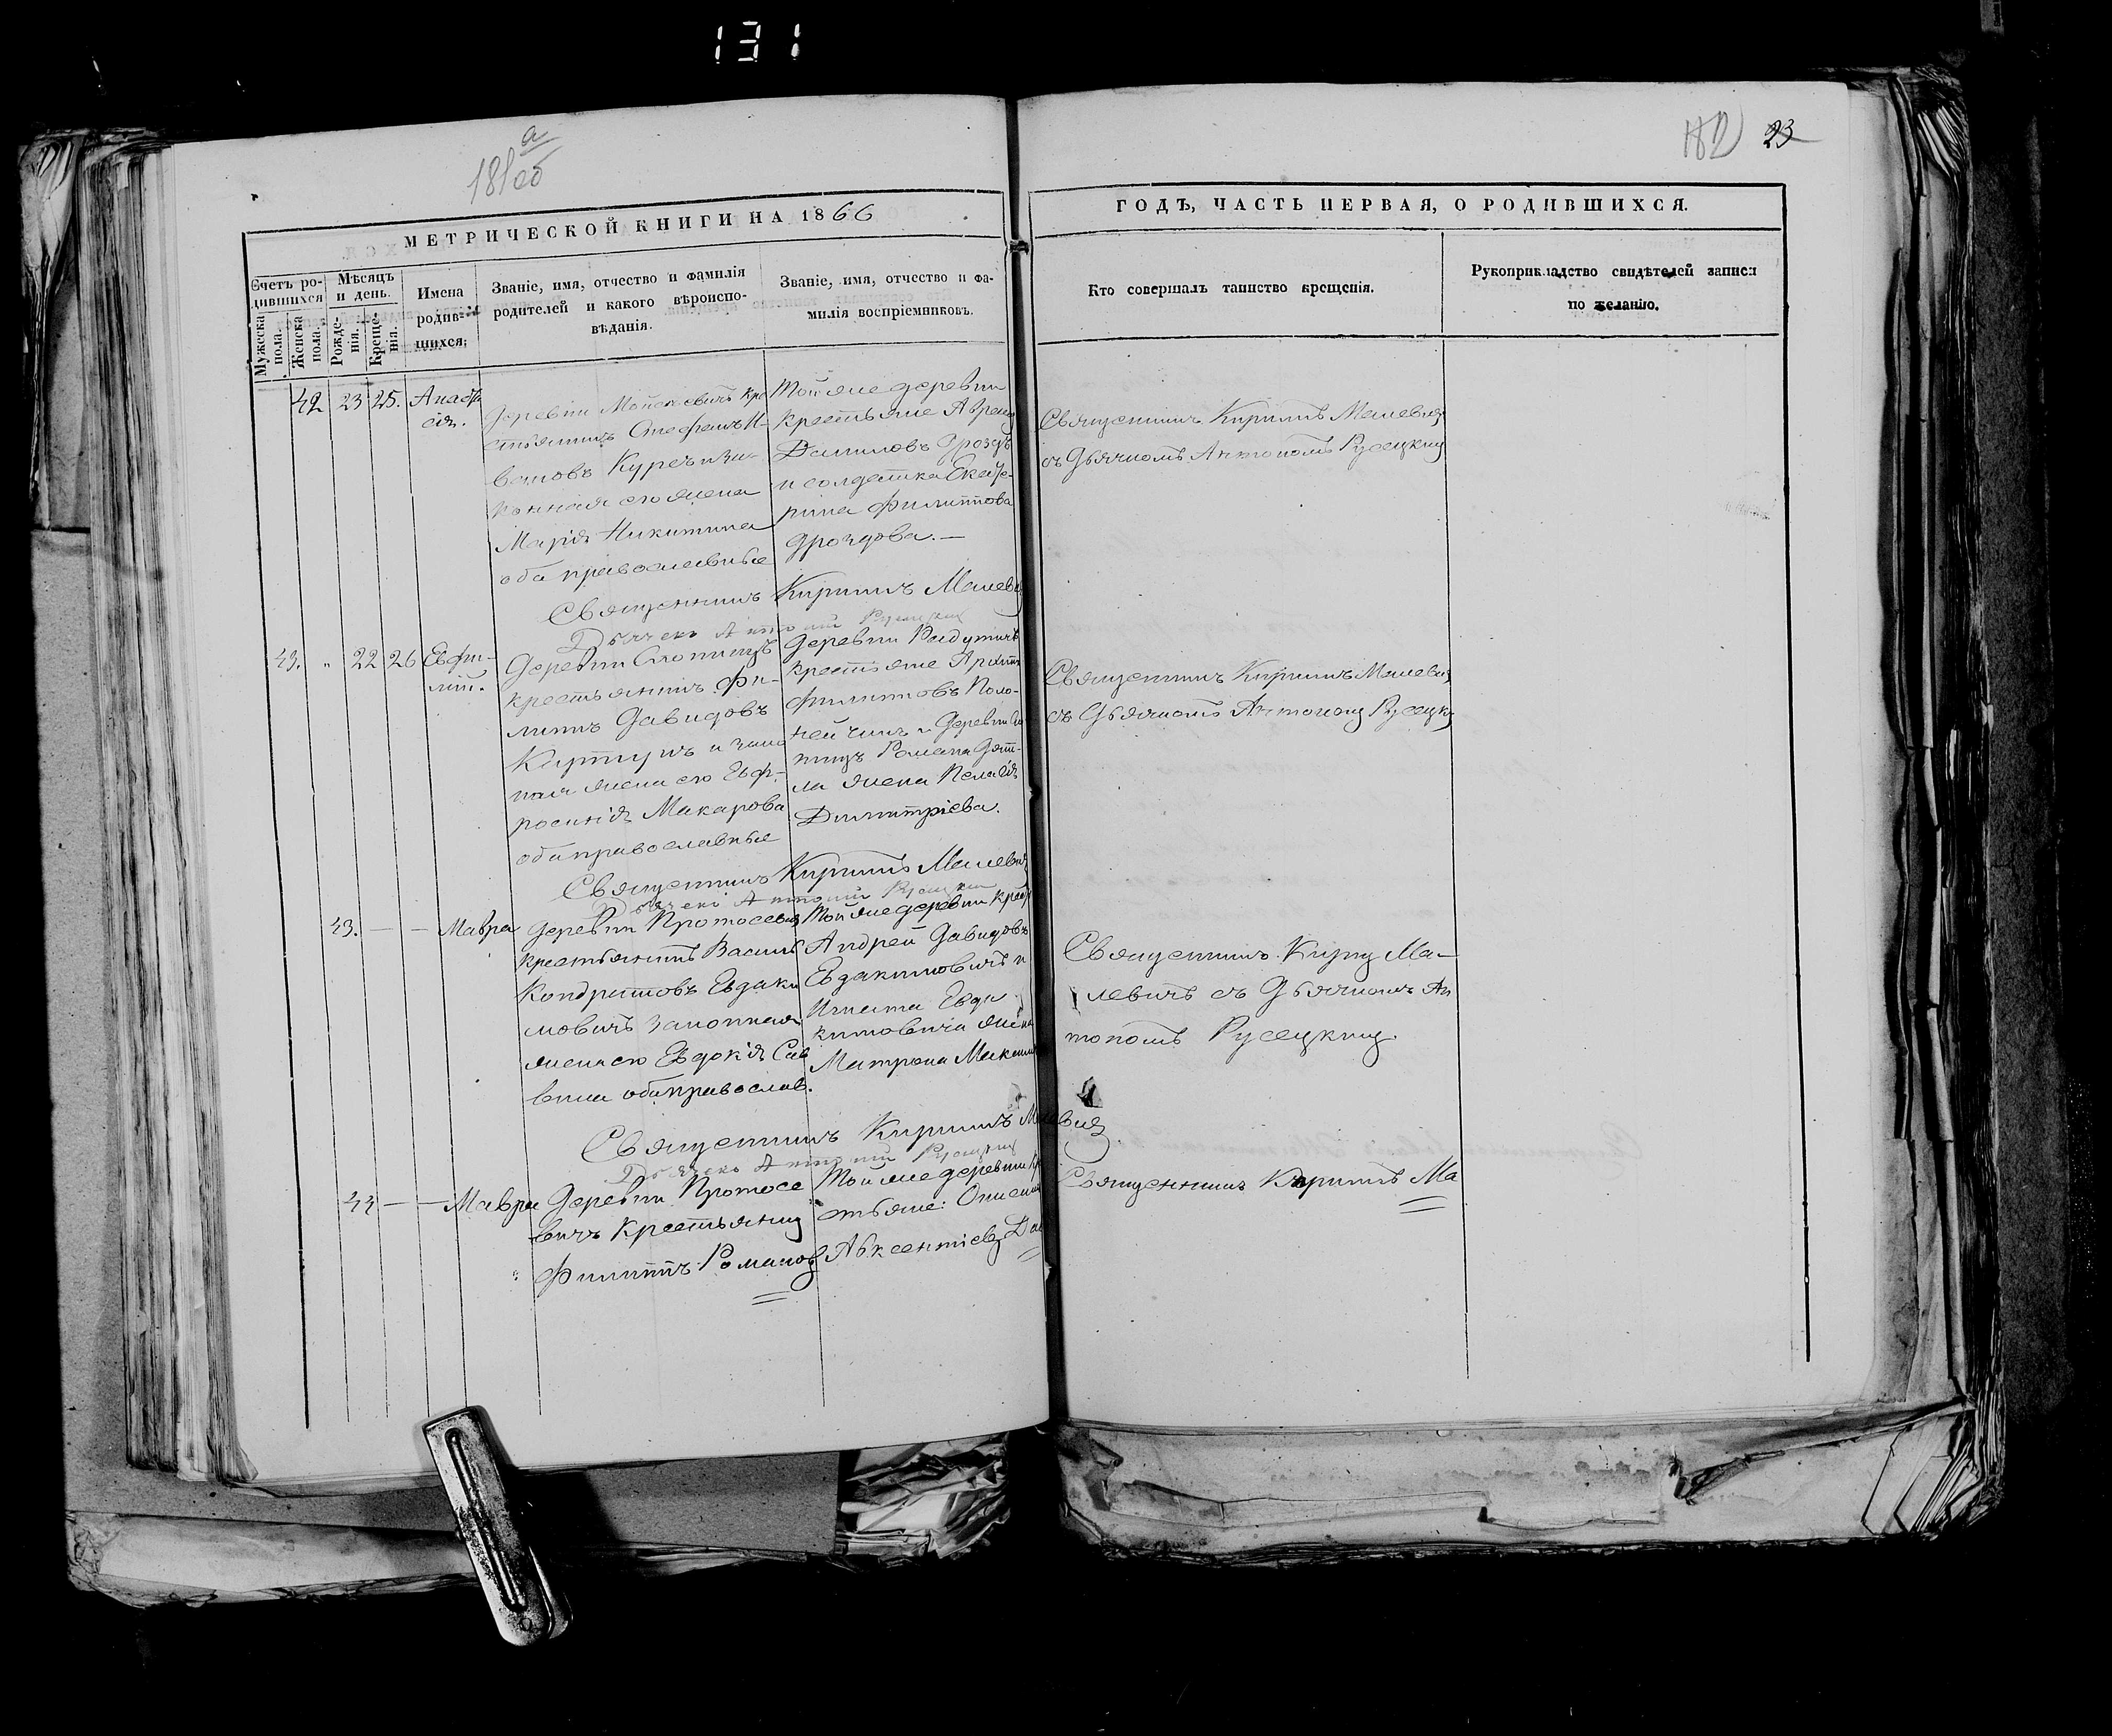 131
181 об
а
182 23
МЕТРИЧЕСКОЙ КНИГИ НА 1866
ГОДЪ, ЧАСТЬ ПЕРВАЯ, О РОДИВШИХСЯ.
Счетъ ро-
дившихся
Мужеска
пола.
Женска
пола.
Мѣсяцъ
и день.
Рожде-
нія.
Креще-
нія.
Имена
родив-
шихся;
Званіе, имя, отчество и фамилія
родителей и какого вѣроиспо-
вѣданія.
Званіе, имя, отчество и фа-
милія воспріемниковъ.
Кто совершалъ таинство крещенія.
Рукоприкладство свидѣтелей записи
по желанію.
42 23 25.
деревни кре
стьянинъ Стефанъ И-
вановъ
конная его жена
Марія Никитина
оба православные
Той же деревни
крестьяне
Даниловъ Дроздъ
и солдатка Екате-
рина Филиппова
Дроздова. —
Священникъ Кириллъ Малевич
съ Дьячкомъ Антономъ Русецким
Священникъ Кириллъ Малевич
Дьячекъ Антоній Русецкий
43. " 22 26 Евфи-
мій.
Деревни
крестьянинъ Фи-
липъ Давидовъ
и зако
ная жена его Евф-
росинія Макарова
оба православные
деревни
крестьяне
Филипповъ Поло-
и деревни
Романа Дят-
ла жена
Димитріева.
Священникъ Кириллъ Малевич
съ Дьячкомъ Антоном Русецки
Священникъ Кириллъ Малевич
Дьячекъ Антоній Русецкий
43. — — Мавра
деревни Протосевич
крестьянинъ Василь
Кондратовъ Евдаки
мовичъ законная
жена его Евдокія Сав
вина оба православ.
Той же деревни крест
Андрей Давидовъ
Евдакимовичъ и
Игната Евда
кимовича жена
Матрона Максим
Священникъ Кирил Ма-
левичъ съ Дьячкомъ Ан
тономъ Русецким.
Священникъ Кириллъ Малевич
Дьячекъ Антоній Русецкий
44 — — Мавра
Деревни Протосе
вичъ Крестьянин
Филиппъ Романов
Той же деревни Кр
стьяне:
Авксентіев
Священникъ Кириллъ Ма